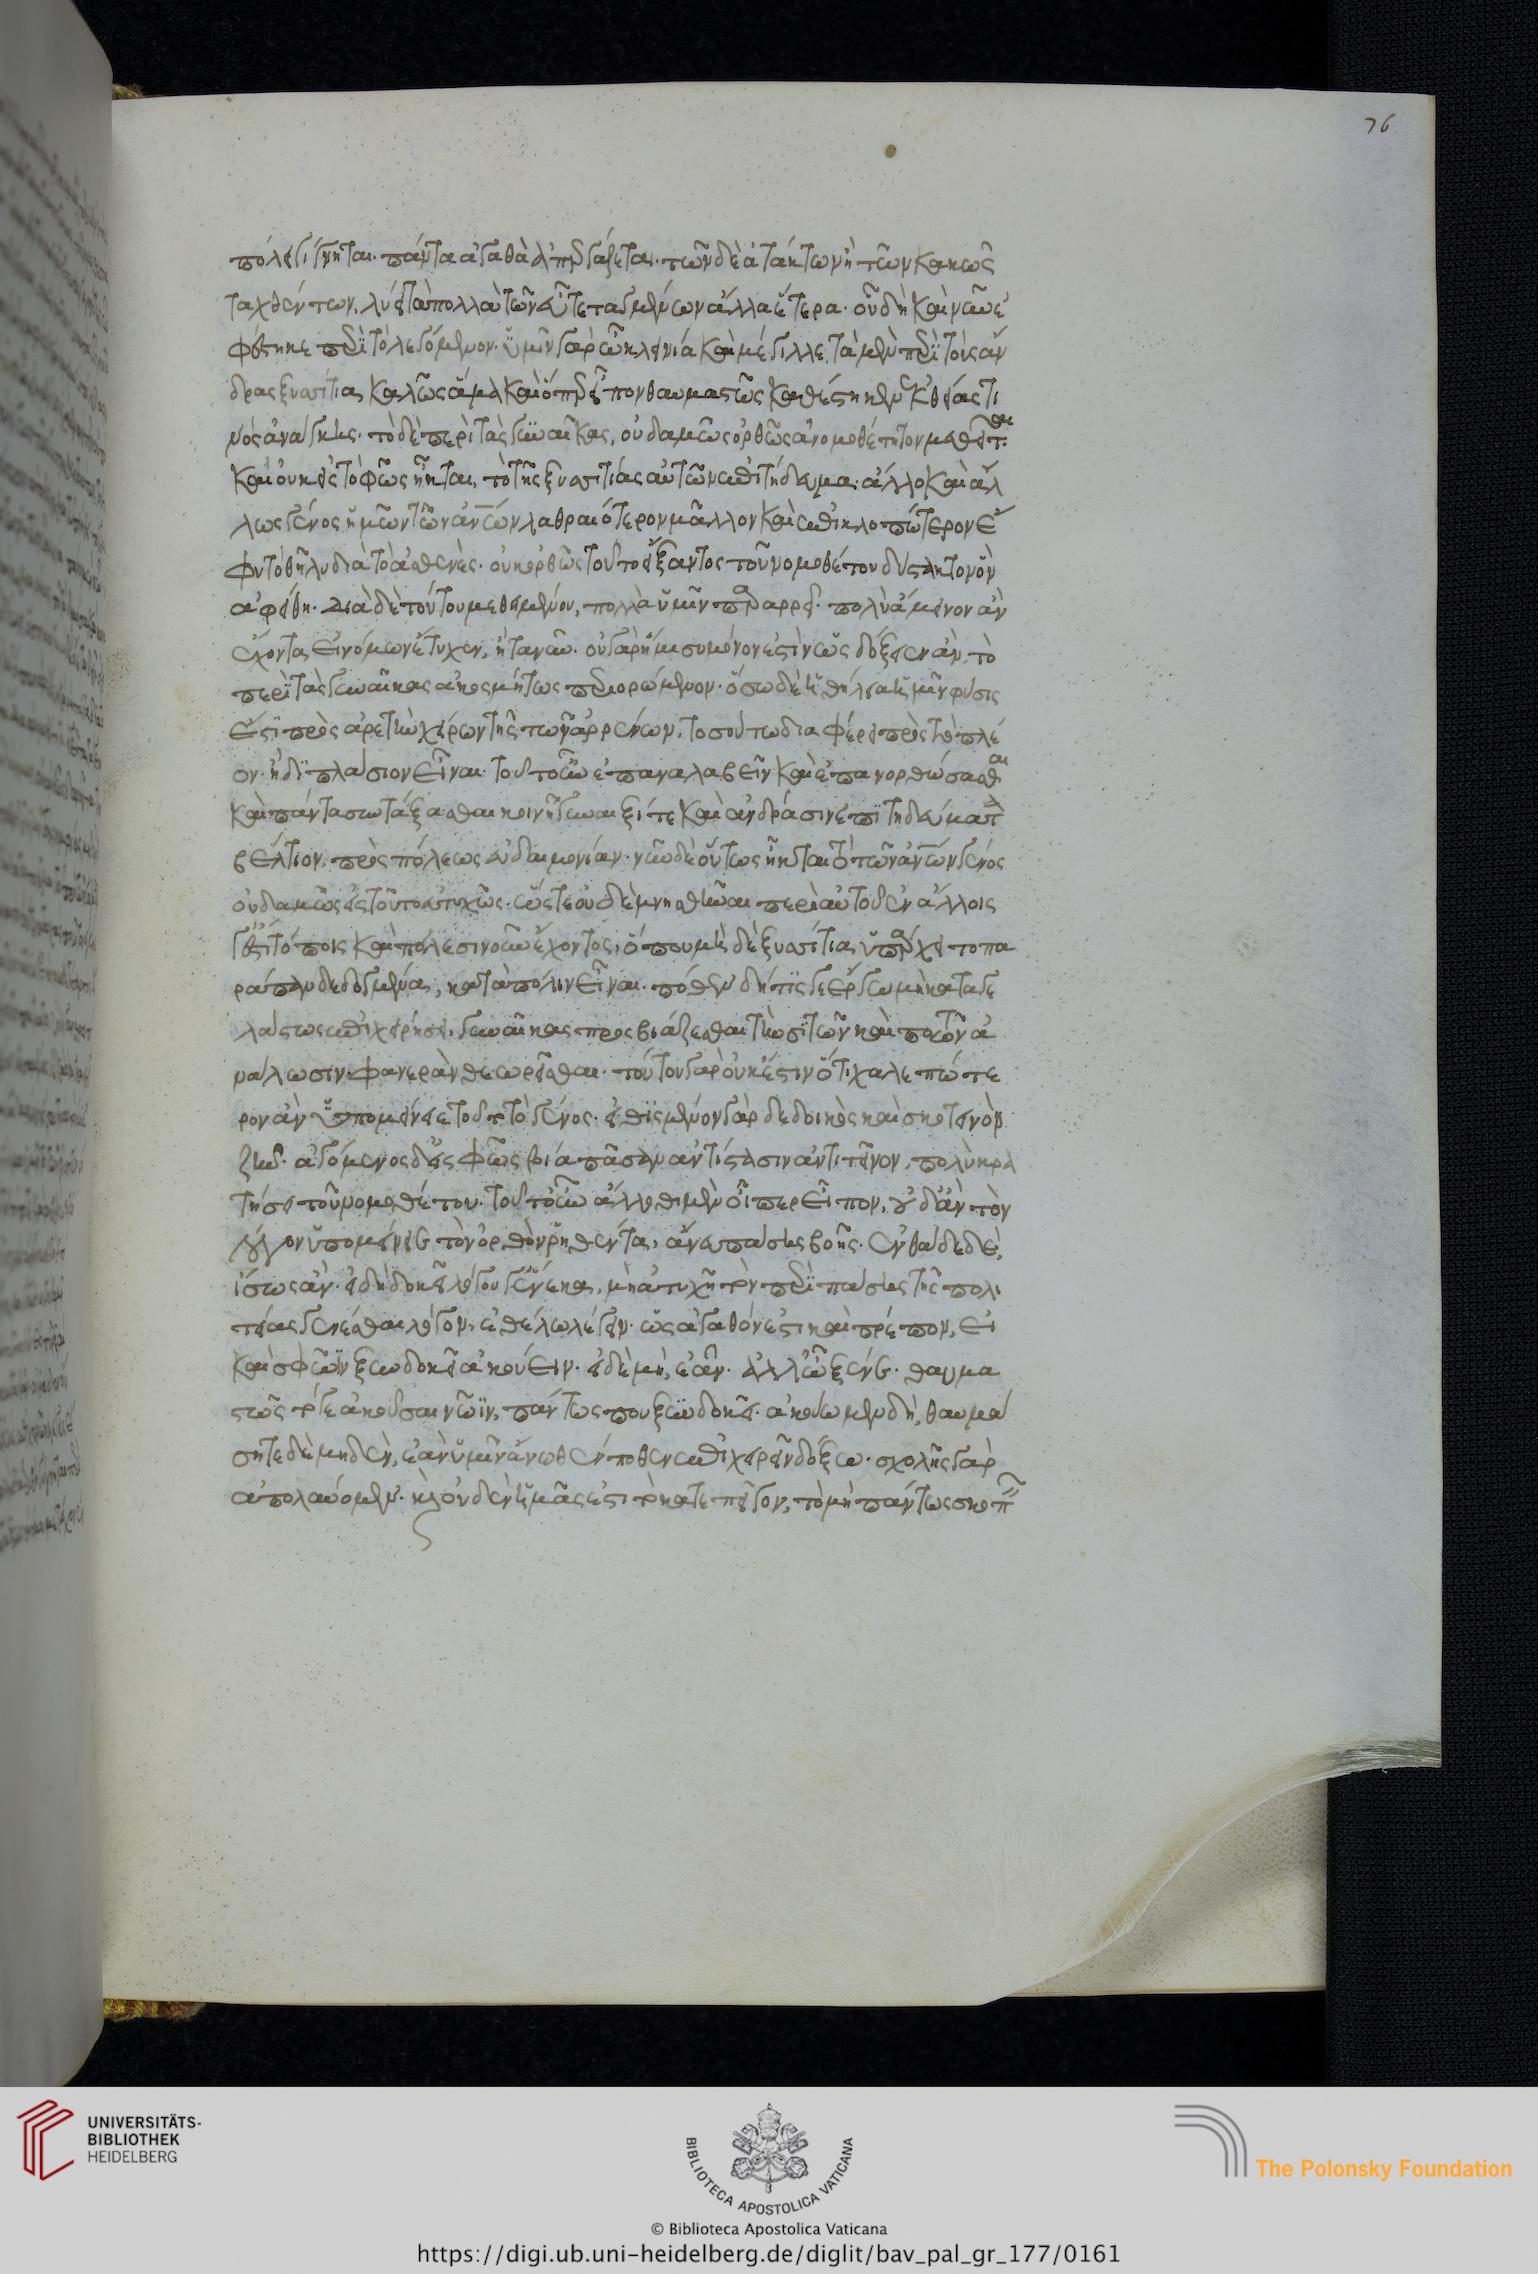 76
πόλει γίγνηται. πάντα ἀγαθὰ ἀπεργάζεται. τῶν δὲ ἀτάκτων ἢ τῶν κακῶς
ταχθέντων, λύει τὰ πολλὰ τῶν εὖ τεταγμένων ἄλλα ἕτερα. οὗ δὴ καὶ νῦν ἐ
φέστηκε περὶ τὸ λεγόμενον. ὑμῖν γὰρ ὦ κλεινία καὶ μέγιλλε, τὰ μὲν περὶ τοὺς ἄν
δρας ξυσίτια, καλῶς ἅμα καὶ ὅπερ εἶπον θαυμαστῶς καθέστηκεν ἐκ θείας τι
νὸς ἀνάγκης. τὸ δὲ περὶ τὰς γυναῖκας, οὐδαμῶς ὀρθῶς ἀνομοθέτητον μεθεῖται.
καὶ οὐκ εἰς τὸ φῶς ἦκται, τὸ τῆς ξυσιτίας αὐτῶν ἐπιτήδευμα. ἀλλ' ὃ καὶ ἄλ
λως γένος ἡμῶν τῶν ἀν̅ων λαθραιότερον μᾶλλον καὶ ἐπικλοπώτερον ἔ
φυ τὸ θῆλυ διὰ τὸ ἀσθενὲς. οὐκ ὀρθῶς τοῦτο εἴξαντος τοῦ νομοθέτου δύστακτον ὂν
ἀφείθη. διὰ δὲ τούτου μεθειμένου, πολλὰ ὑμῖν παραρρεῖ. πολὺ ἄμεινον ἂν
ἔχοντα, εἰ νόμων ἔτυχεν, ἢ τανῦν. οὐ γὰρ ἥμισυ μόνον ἐστὶν ὡς δόξειεν ἂν, τὸ
περὶ τὰς γυναῖκας ἀκοσμήτως περιορώμενον. ὅσω δὲ ἡ θήλεια ἡμῖν φύσις
ἐστὶ πρὸς ἀρετὴν χείρων τῆς τῶν ἀρρένων, τοσούτω διαφέρει πρὸς τὸ πλέ
ον. ἢ διπλάσιον εἶναι. τοῦτ' οὖν ἐπαναλαβεῖν καὶ ἐπανορθώσασθαι
καὶ πάντα συντάξασθαι κοινῇ γυναιξί τε καὶ ἀνδράσιν ἐπιτηδεύματα
βέλτιον, πρὸς πόλεως εὐδαιμονίαν. νῦν δὲ οὕτως ἦκται τὸ τῶν ἀν̅ων γένος
οὐδαμῶς εἰς τοῦτο εὐτυχῶς. ὥστε οὐδὲ μνησθῆναι περὶ αὐτοῦ ἐν ἄλλοις
γ' ἐστὶ τόποις καὶ πόλεσι νοῦν ἔχοντος, ὅπου μὴ δὲ ξυσίτια ὑπάρχει τοπα
ράπαν δεδογμένα, κατὰ πόλιν εἶναι. πόθεν δή τίς γε ἔργω μὴ καταγε
λάστως ἐπιχειρήσει, γυναῖκας προσβιάζεσθαι τὴν σίτων καὶ ποτῶν ἀ
νάλωσιν φανερὰν θεωρεῖσθαι. τούτου γὰρ οὐκ ἔστιν ὅτι χαλεπώτε
ρον ἂν ὑπομείνειε τοῦτο τὸ γένος. εἰθισμένον γὰρ δεδοικὸς καὶ σκοτεινὸν
ζῆν. ἀγόμενος δ' εἰς φῶς βία πᾶσαν ἀντίστασιν ἀντιτεῖνον, πολὺ κρα
τήσει τοῦ νομοθέτου. τοῦτ' οὖν ἄλλοθι μὲν οἷπερ εἶπον, οὐδ' ἂν τὸν
λόγον ὑπομείνειεν τὸν ὀρθὸν ῥηθέντα, ἄνευ πάσης βοῆς. ἐνθάδε δὲ,
ἴσως ἂν. εἰ δὴ δοκεῖ λόγου γ' ἕνεκα, μὴ ἀτυχῆ τὸν περὶ πάσης τῆς πολι
τείας γενέσθαι λόγον, ἐθέλω λέγειν. ὡς ἀγαθόν ἐστι καὶ πρέπον, εἰ
καὶ σφῶϊν ξυνδοκεῖ ἀκούειν. εἰ δὲ μὴ, ἐᾶν. ἀλλ' ὦ ξένε. θαυμα
στῶς τό γε ἀκοῦσαι νῶϊν, πάντως που ξυνδοκεῖ. ἀκούωμεν δὴ, θαυμά
σητε δὲ μηδὲν, ἐὰν ὑμῖν ἄνωθέν ποθεν ἐπιχειρεῖν δόξω. σχολῆς γὰρ
ἀπολαύομεν. καὶ οὐδὲν ἡμᾶς ἐστι τὸ κατεπεῖγον, τὸ μὴ πάντως σκοπεῖν
UNIVERSITÄTS-
BIBLIOTHEK
HEIDELBERG
BIBLIOTECA APOSTOLICA VATICANA
The Polonsky Foundation
© Biblioteca Apostolica Vaticana
https://digi.ub.uni-heidelberg.de/diglit/bav_pal_gr_177/0161